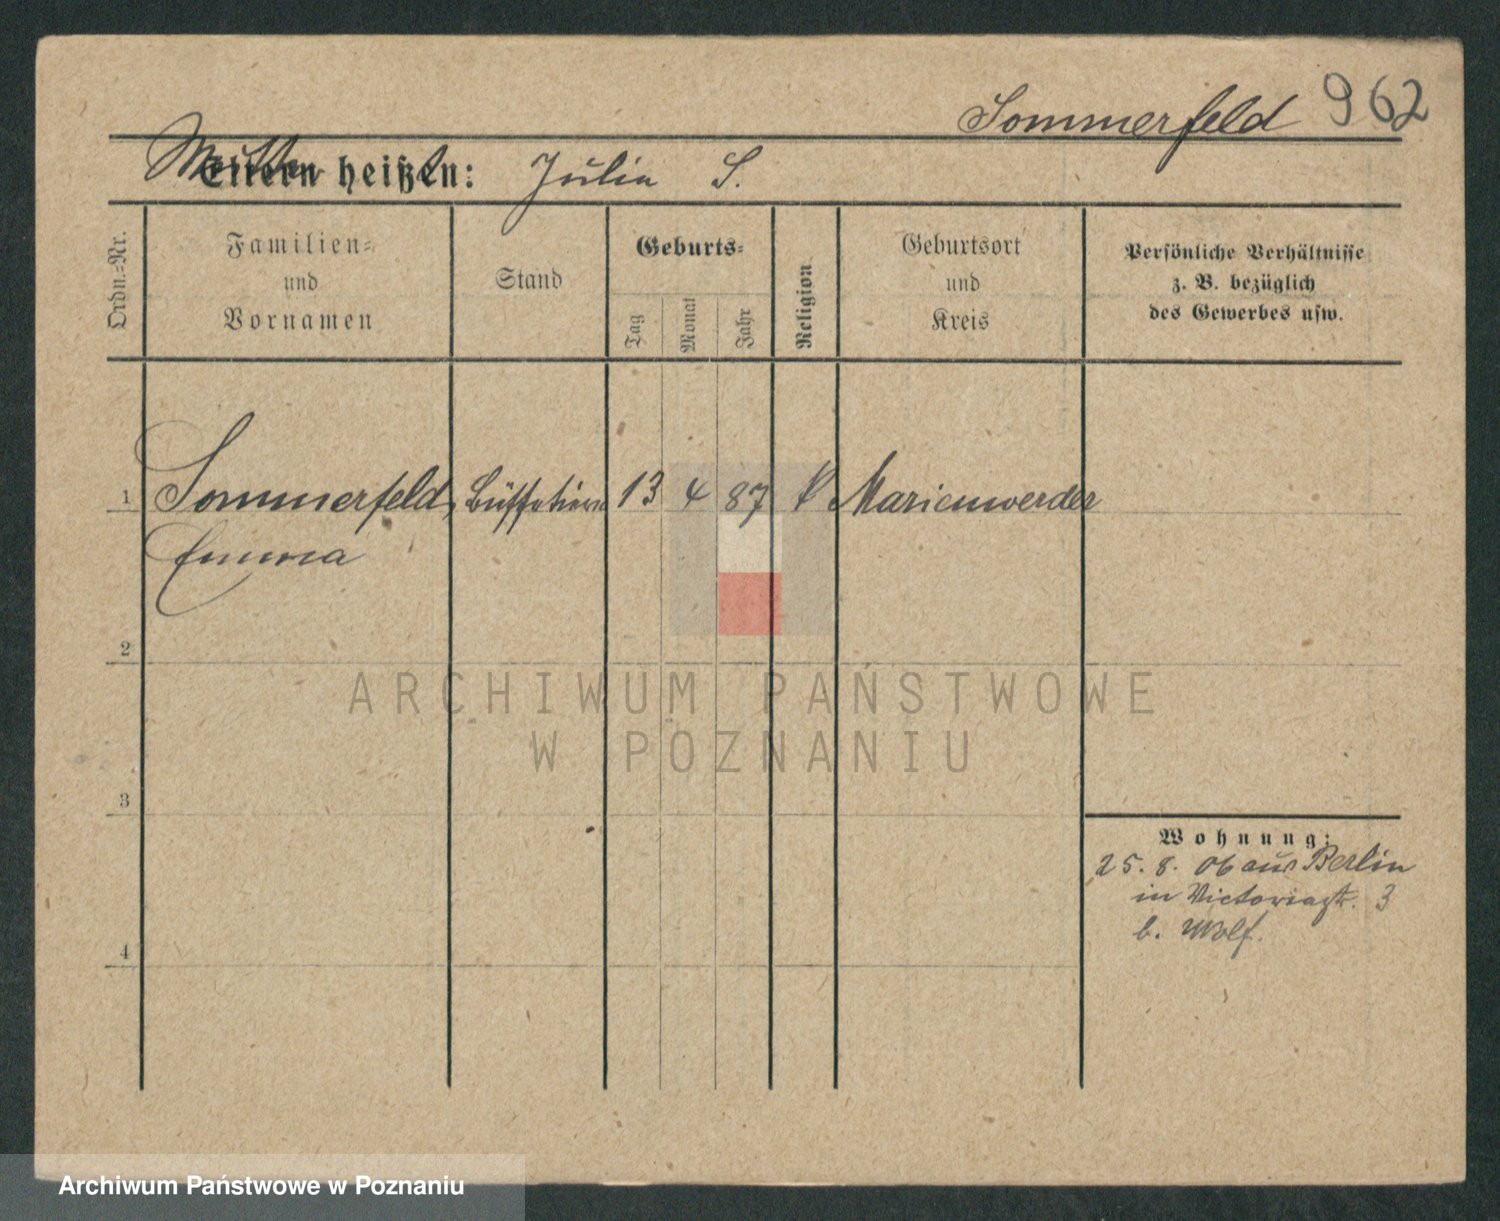 Sommerfeld 962
Mutter Eltern heißen: Julia S.
Ordn.-Nr.
Familien-
und
Vornamen
Stand
Geburts-
Tag
Monat
Jahr
Religion
Geburtsort
und
Kreis
Persönliche Verhältnisse
z. B. bezüglich
des Gewerbes usw.
1 Sommerfeld, 13 4 87 Marienwerder
Emma
2
ARCHIWUM PAŃSTWOWE
W POZNANIU
3
Wohnung:
25. 8. 06 aus Berlin
in Victoriastr. 3
b. Wolf.
4
Archiwum Państwowe w Poznaniu